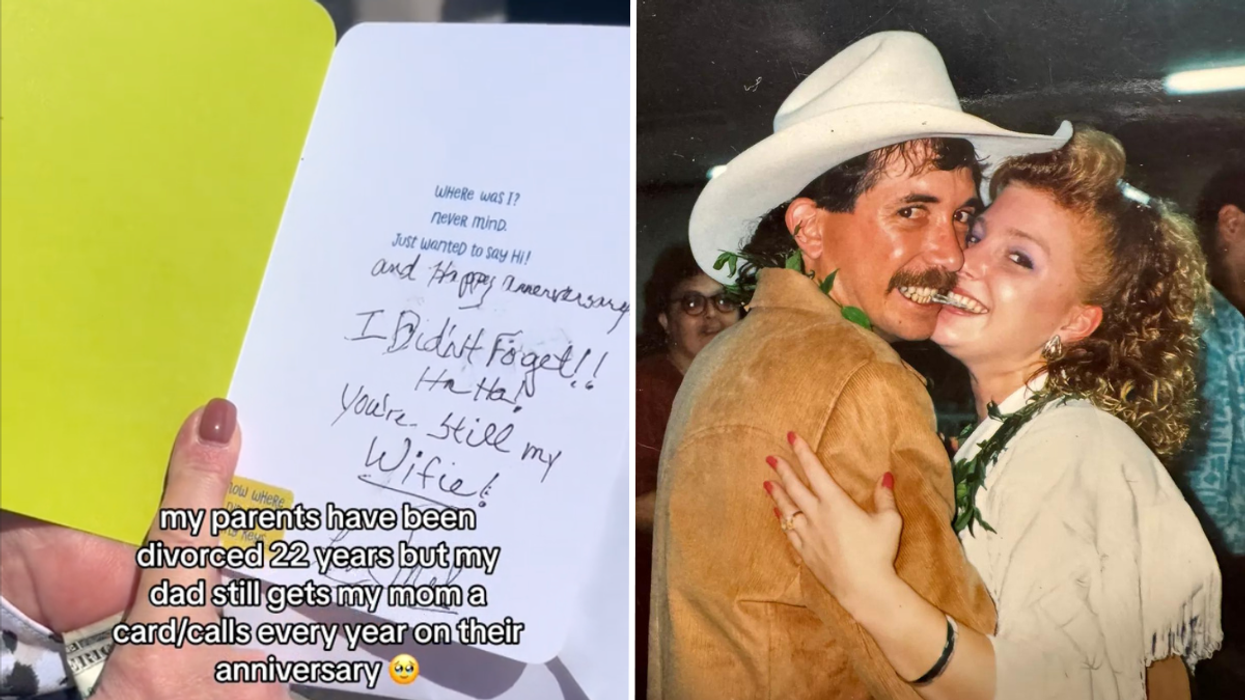 WHERE WAS I?
NEVER MIND.
JUST WANTED TO SAY HI!
and Happy Anneversary
I Didn't Forget!!
Ha Ha!
You're Still my
Wifie!
NOW WHERE
my parents have been
divorced 22 years but my
dad still gets my mom a
card/calls every year on their
anniversary 🥹